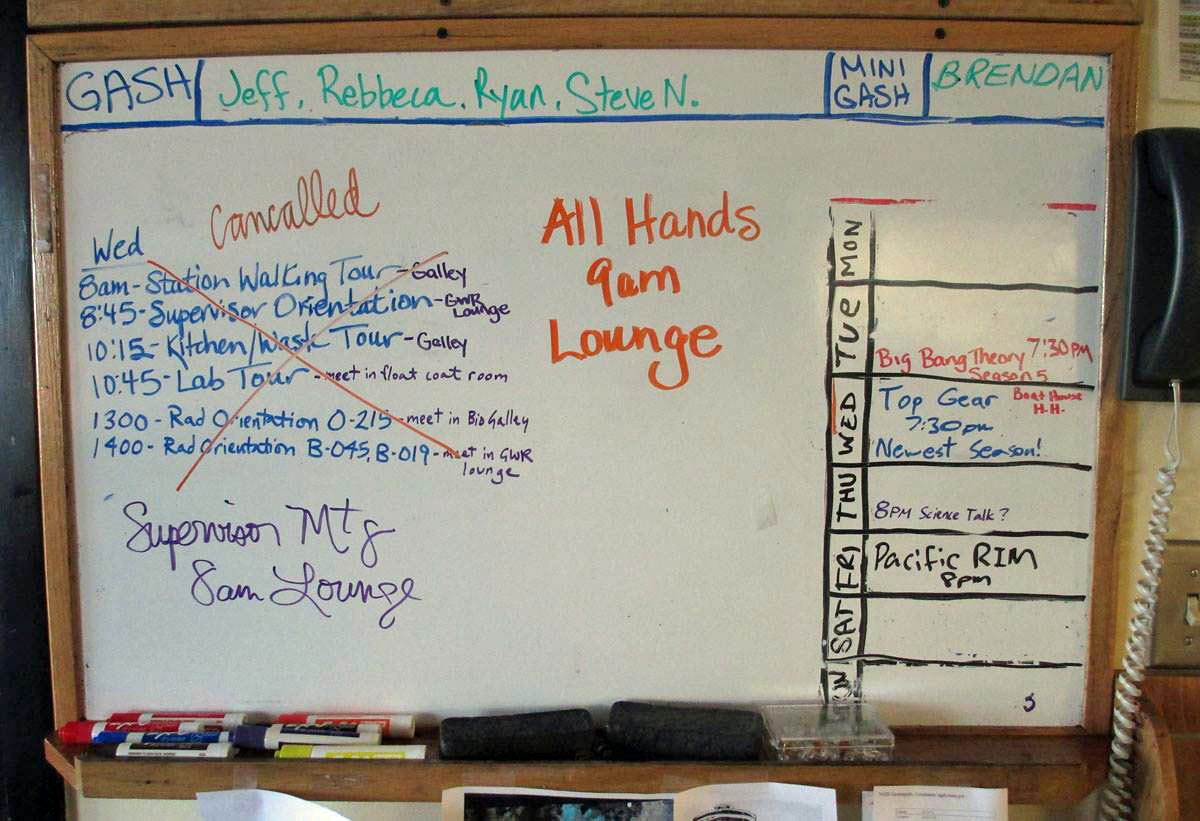 GASH Jeff, Rebbeca, Ryan, Steve N. MINI GASH BRENDAN
Cancalled
Wed
8am - Station Walking Tour - Galley
8:45 - Supervisor Orientation - GWR Lounge
10:15 - Kitchen/Waste Tour - Galley
10:45 - Lab Tour - meet in float coat room
1300 - Rad Orientation O-215 - meet in Bio Galley
1400 - Rad Orientation B-045, B-019 - meet in GWR lounge
Supervisor Mtg
8am Lounge
All Hands
9am
Lounge
MON
TUE Big Bang Theory 7:30 PM
Season 5
WED Top Gear Boat House
H.H.
7:30pm
Newest Season!
THU 8PM Science Talk?
FRI Pacific RIM
8pm
SAT